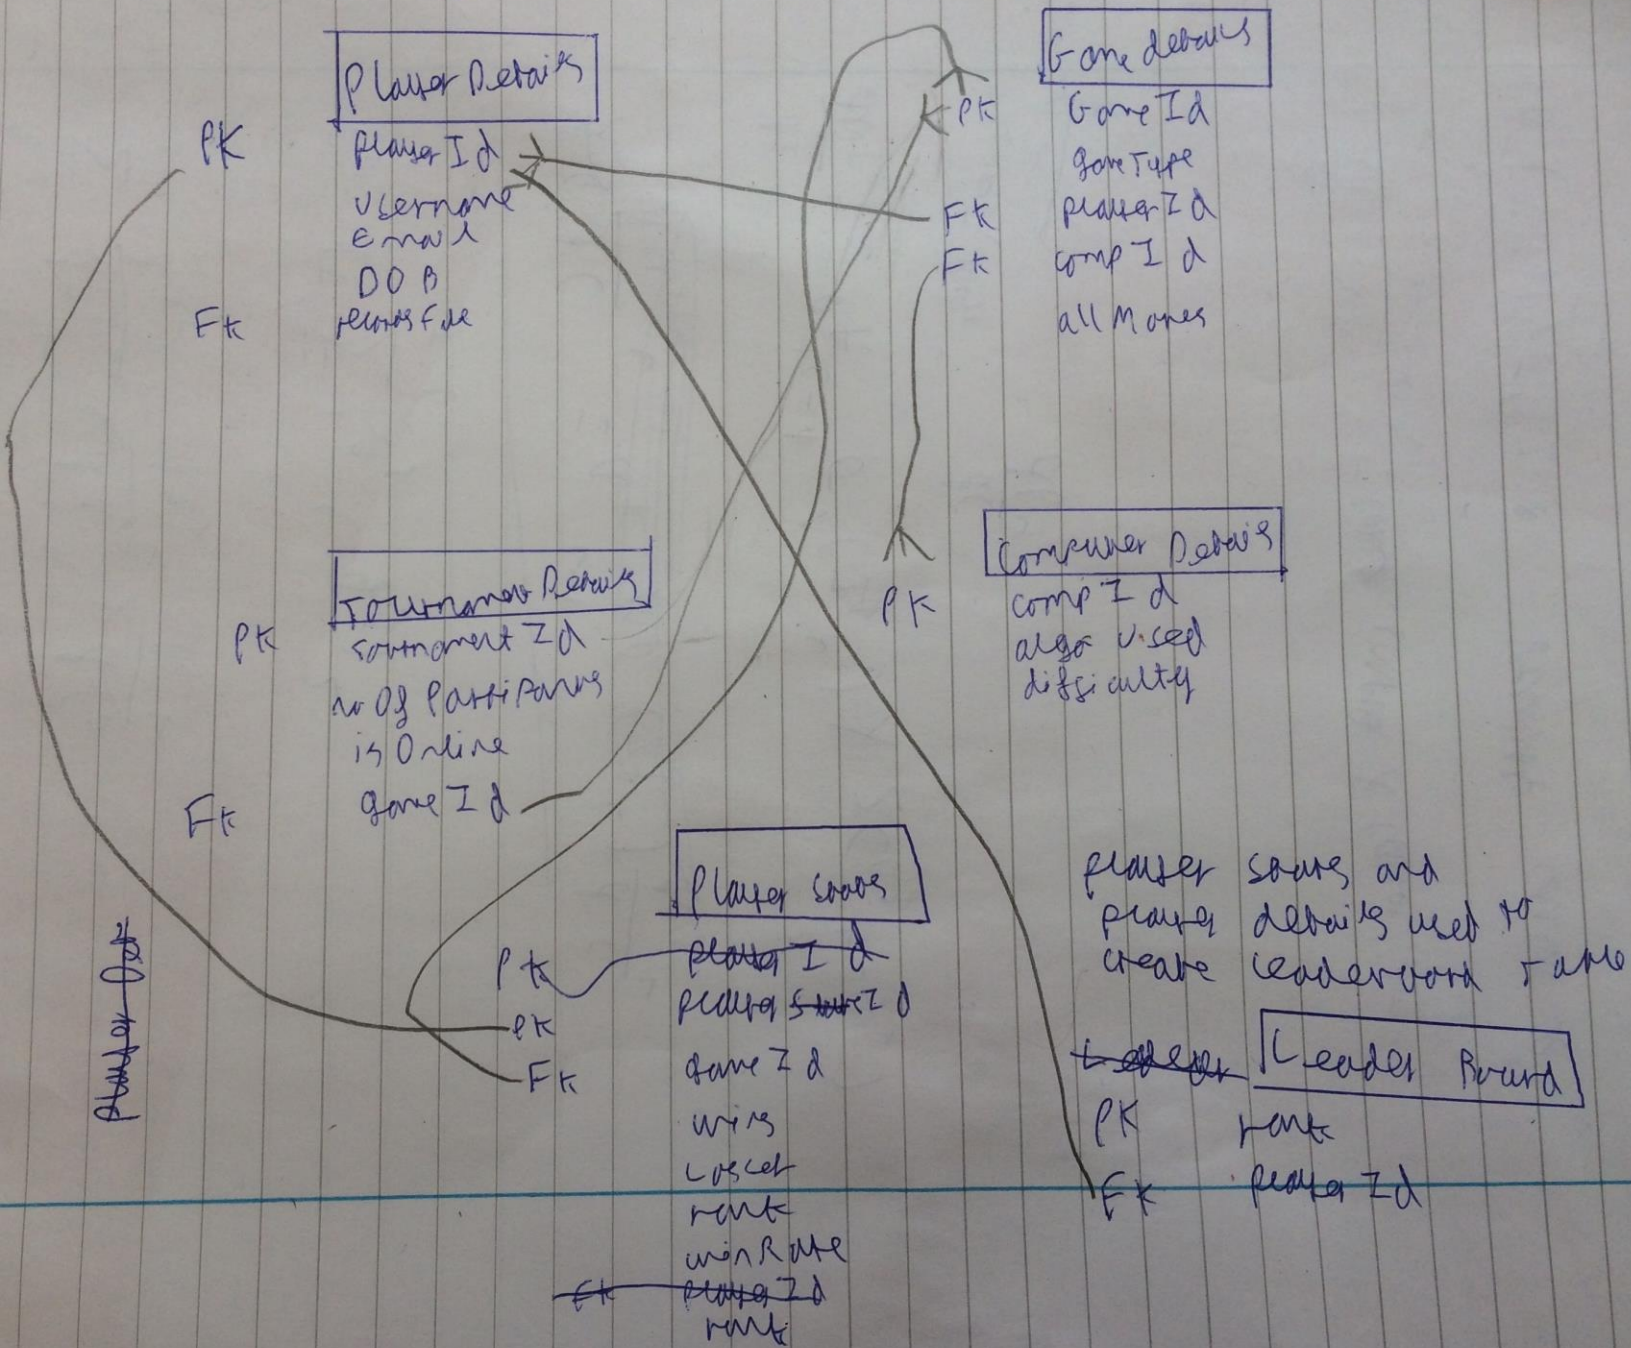 Player Details
PK player Id
Username
Email
DOB
FK recordsFile
Game details
PK Game Id
gameType
FK player Id
FK comp Id
all Moves
Tournament Details
PK tournament Id
no Of Participants
is Online
FK game Id
Computer Details
PK comp Id
algo used
difficulty
Player Scores
PK player Id
PK player Id
FK game Id
wins
Losses
rank
winRate
FK player Id
rank
player scores and
player details used to
create leaderboard table
Leader Board
PK rank
FK player Id